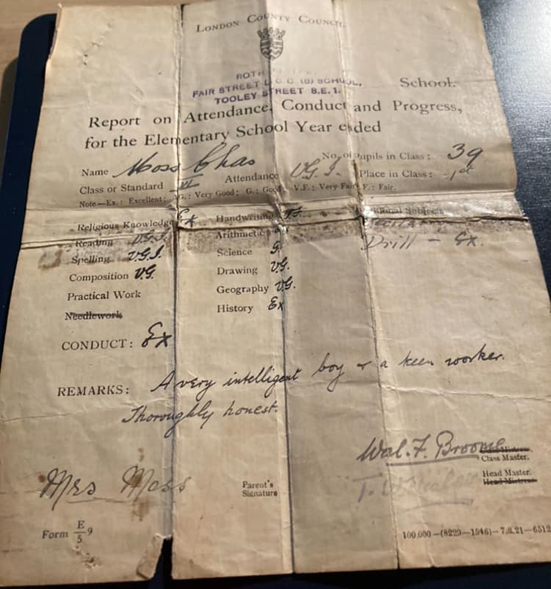 LONDON COUNTY COUNCIL.
FAIR STREET L.C.C. (B) SCHOOL,
TOOLEY STREET S.E.1.
School.
Report on Attendance, Conduct and Progress,
for the Elementary School Year ended
Name Moss Chas No. of Pupils in Class: 39
Class or Standard VI Attendance V.G.I. Place in Class: 1st
Note—Ex.: Excellent; V.G.: Very Good; G.: Good; V.F.: Very Fair; F.: Fair.
Religious Knowledge Ex Handwriting Optional Subjects
Reading V.G.I. Arithmetic
Drill – Ex.
Spelling V.G.I. Science G.
Composition VG. Drawing VG.
Practical Work Geography VG.
Needlework History Ex
CONDUCT: Ex
REMARKS: A very intelligent boy & a keen worker.
Thoroughly honest.
Wal. F. Broome Class Mistress.
Class Master.
Mrs Moss Parent's
Signature
Head Master.
Head Mistress.
Form E/5 9
100,000—(8229—1946)—7.4.21—6512